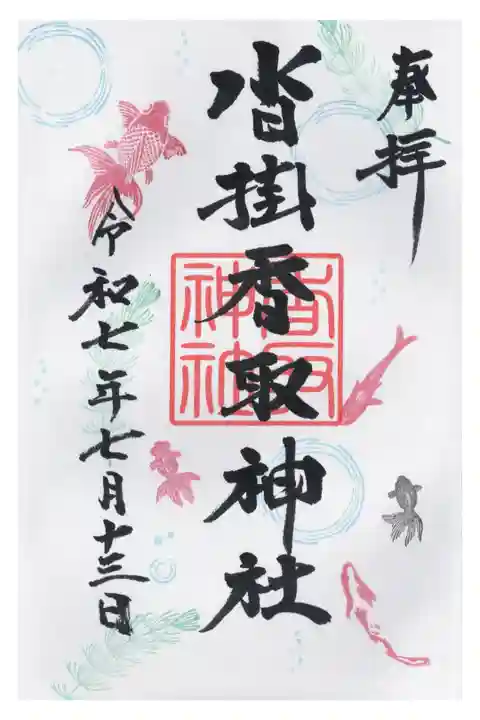 奉拝
沓掛香取神社
香取神社
令和七年七月十三日